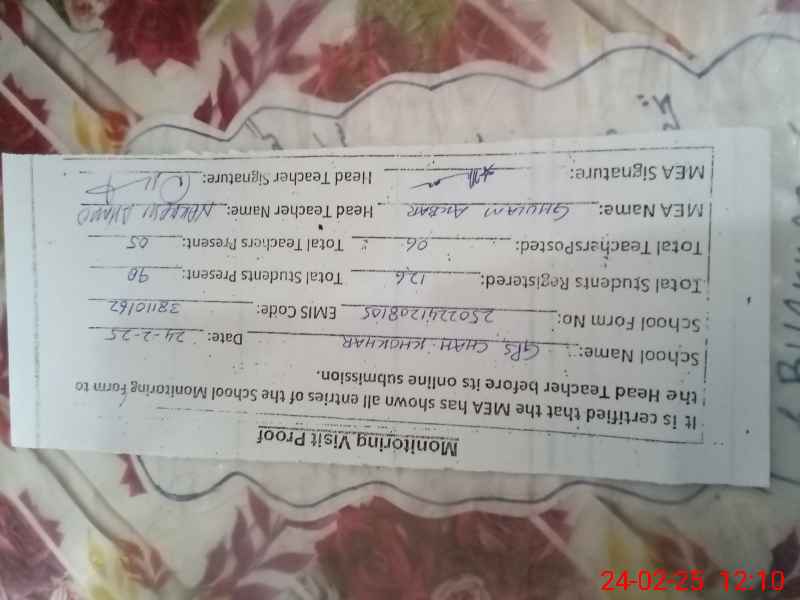 Monitoring Visit Proof
It is certified that the MEA has shown all entries of the School Monitoring Form to
the Head Teacher before its online submission.
School Name: GPS CHAH KHOKHAR Date: 24-2-25
School Form No: 2502241208105 EMIS Code: 38110162
Total Students Registered: 126 Total Students Present: 90
Total TeachersPosted: 06 Total Teachers Present: 05
MEA Name: GHULAM AKBAR Head Teacher Name:
MEA Signature: Head Teacher Signature:
24-02-25 12:10